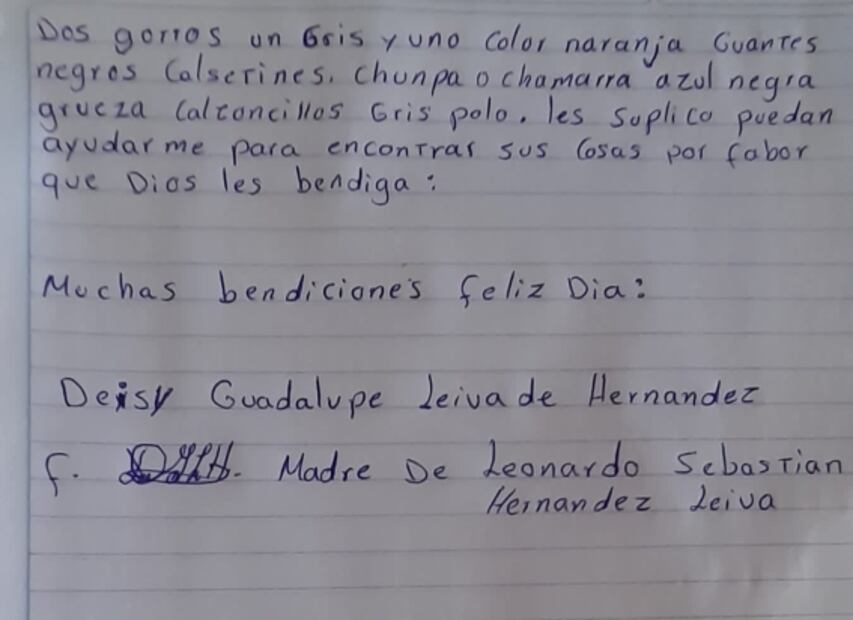 Dos gorros un Gris y uno Color naranja Guantes
negros Calsetines. Chunpa o chamarra azul negra
grueza Calzoncillos Gris polo. les suplico puedan
ayudarme para encontrar sus Cosas por fabor
que Dios les bendiga:
Muchas bendiciones feliz Dia:
Deisy Guadalupe Leiva de Hernandez
f. DGLH. Madre De Leonardo Sebastian
Hernandez Leiva